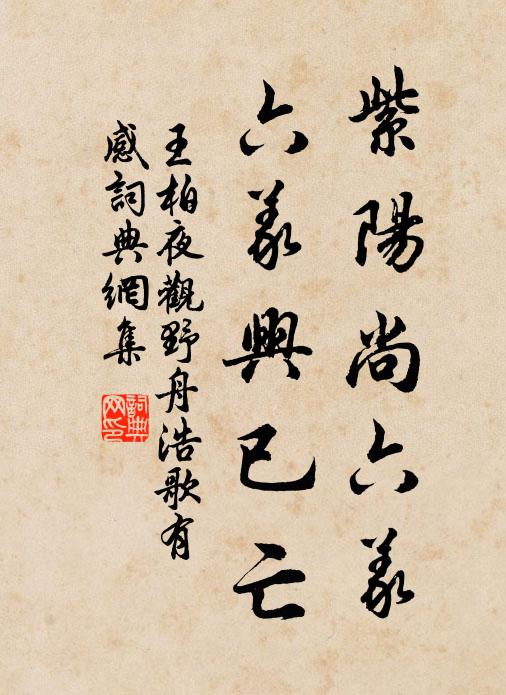 紫陽尚六義
六義興已亡
王柏夜觀野舟浩歌有
感詞典網集
詞典
网印